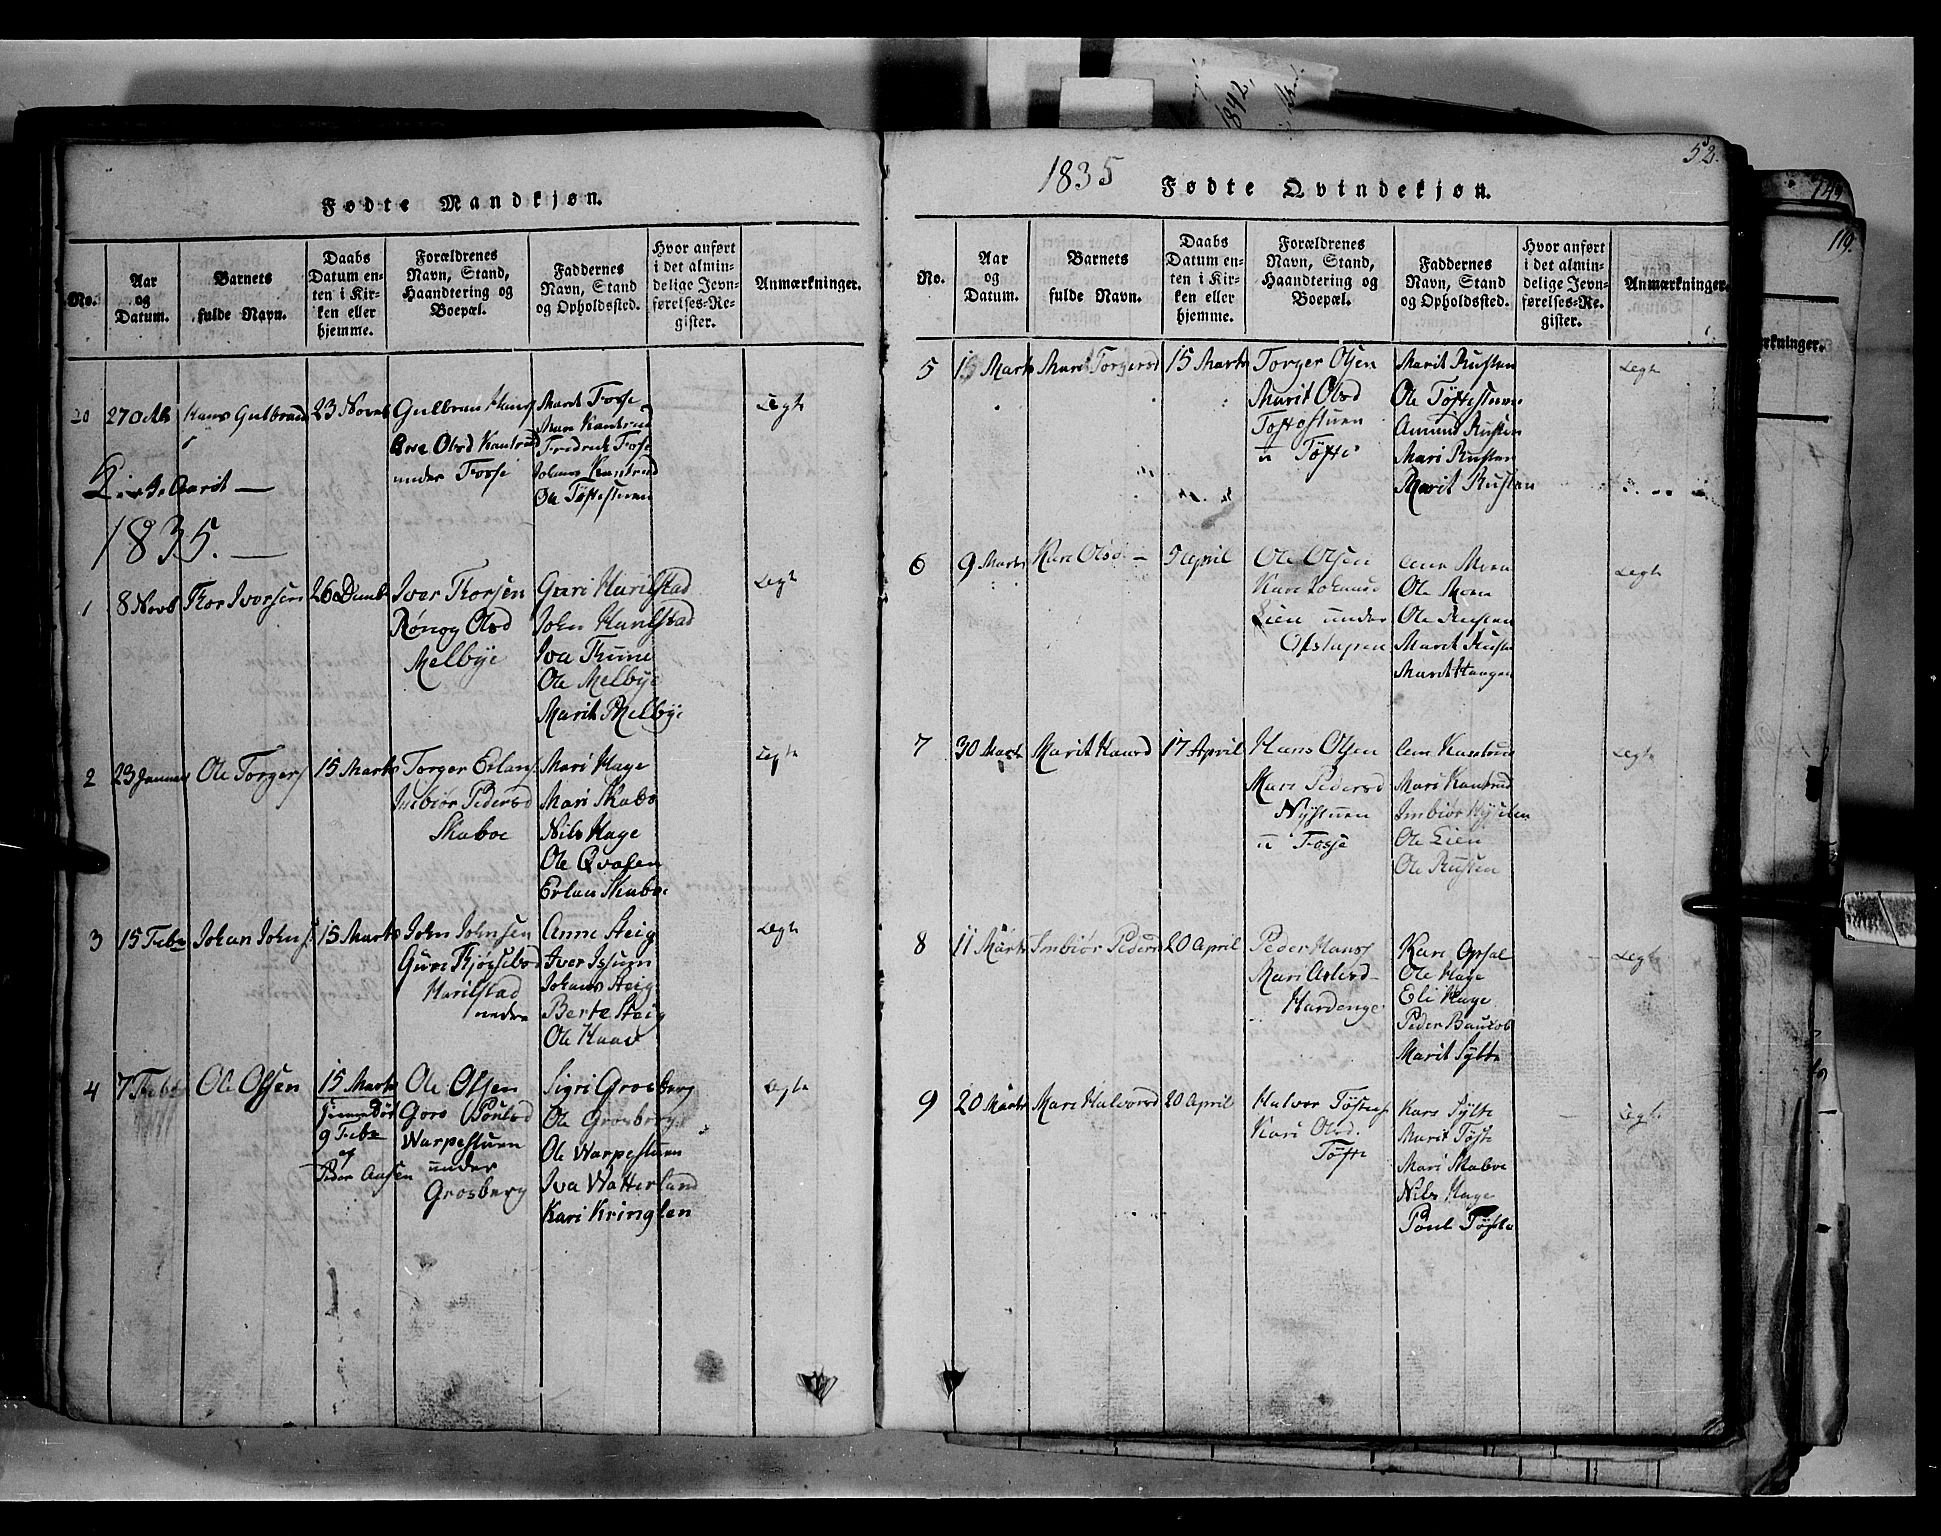 Fødte Mandkjøn.
No.
Aar og Datum.
Barnets fulde Navn.
Daabs Datum enten i Kirken eller hjemme.
Forældrenes Navn, Stand, Haandtering og Boepæl.
Faddernes Navn, Stand og Opholdssted.
Hvor anført i det almindelige Jevnførelses-Register.
Anmærkninger.
20
27 Octb
Hans Gulbrand
23 Novb
Gulbran Hans
Olsd Kantrud
under Fosse
Marit Fosse
Mari Kantrud
Fredrik Fosse
Johans Kantrud
Ole Töftestuen
Legt
1835.
1
8 Novb
Thor Iversen
26 Decmb
Iver Thorsen
Rønog Olsd
Melbÿe
Guri Harilstad
John Harilstad
Iva Thune
Ole Melbÿe
Marit Melbÿe
Legt
2
23 Januar
Ole Torgers
15 Marts
Torger Erlans
Imbiör Pedersd
Skaboe
Mari Hage
Mari Skabo
Nils Hage
Ole Qvalen
Erlan Skaboe
Legt
3
15 Febr
Johan Johns
15 Marts
John Johnsen
Guri
Harilstad
nedre
Anne Steig
Iver Issum
Johans Steig
Berte Steig
Ole Haave
Legt
4
7 Febr
Ole Olsen
15 Marts
Hiemmedøbt
9 Febr
af
Peder Aasen
Ole Olsen
Goro Poulsd
Warpestuen
under
Grosberg
Sigri Grosberg
Ole Grosberg
Ole Warpestuen
Iva Watterland
Kari Kringlen
Legt
1835
Fødte Qvindekjøn.
52.
No.
Aar og Datum.
Barnets fulde Navn.
Daabs Datum enten i Kirken eller hjemme.
Forældrenes Navn, Stand, Haandtering og Boepæl.
Faddernes Navn, Stand og Opholdssted.
Hvor anført i det almindelige Jevnførelses-Register.
Anmærkninger.
5
15 Marts
Marit Torgersd
15 Marts
Torger Olsen
Marit Olsd
Töftestuen
u Töfte
Marit Rusten
Ole Töftestuen
Amund Rusten
Mari Rusten
Marit Rusten
Legt
6
9 Marts
Kari Olsd
5 April
Ole Olsen
Kari Johansd
Lien under
Opstapen
Ann Moen
Ole Moen
Ole Rusten
Marit Rusten
Marit Haugen
Legt
7
30 Marts
Marit Hansd
17 April
Hans Olsen
Mari Pedersd
Nÿstuen
u Fosse
Ann Kantrud
Mari Kantrud
Imbiör Nÿstuen
Ole Lien
Ole Rusten
Legt
8
11 Marts
Imbiör Pedersd
20 April
Peder Hans
Mari Aslesd
Hardenge
Kari Opsal
Ole Hage
Eli Hage
Peder
Marit Sÿlte
Legt
9
20 Marts
Mari Halvorsd
20 April
Halvor Töftes
Kari Olsd.
Töfte
Kari Sÿlte
Marit Töfte
Mari Skaboe
Nils Hage
Poul Töfte
Legt
1842.
149
119.
rkninger.